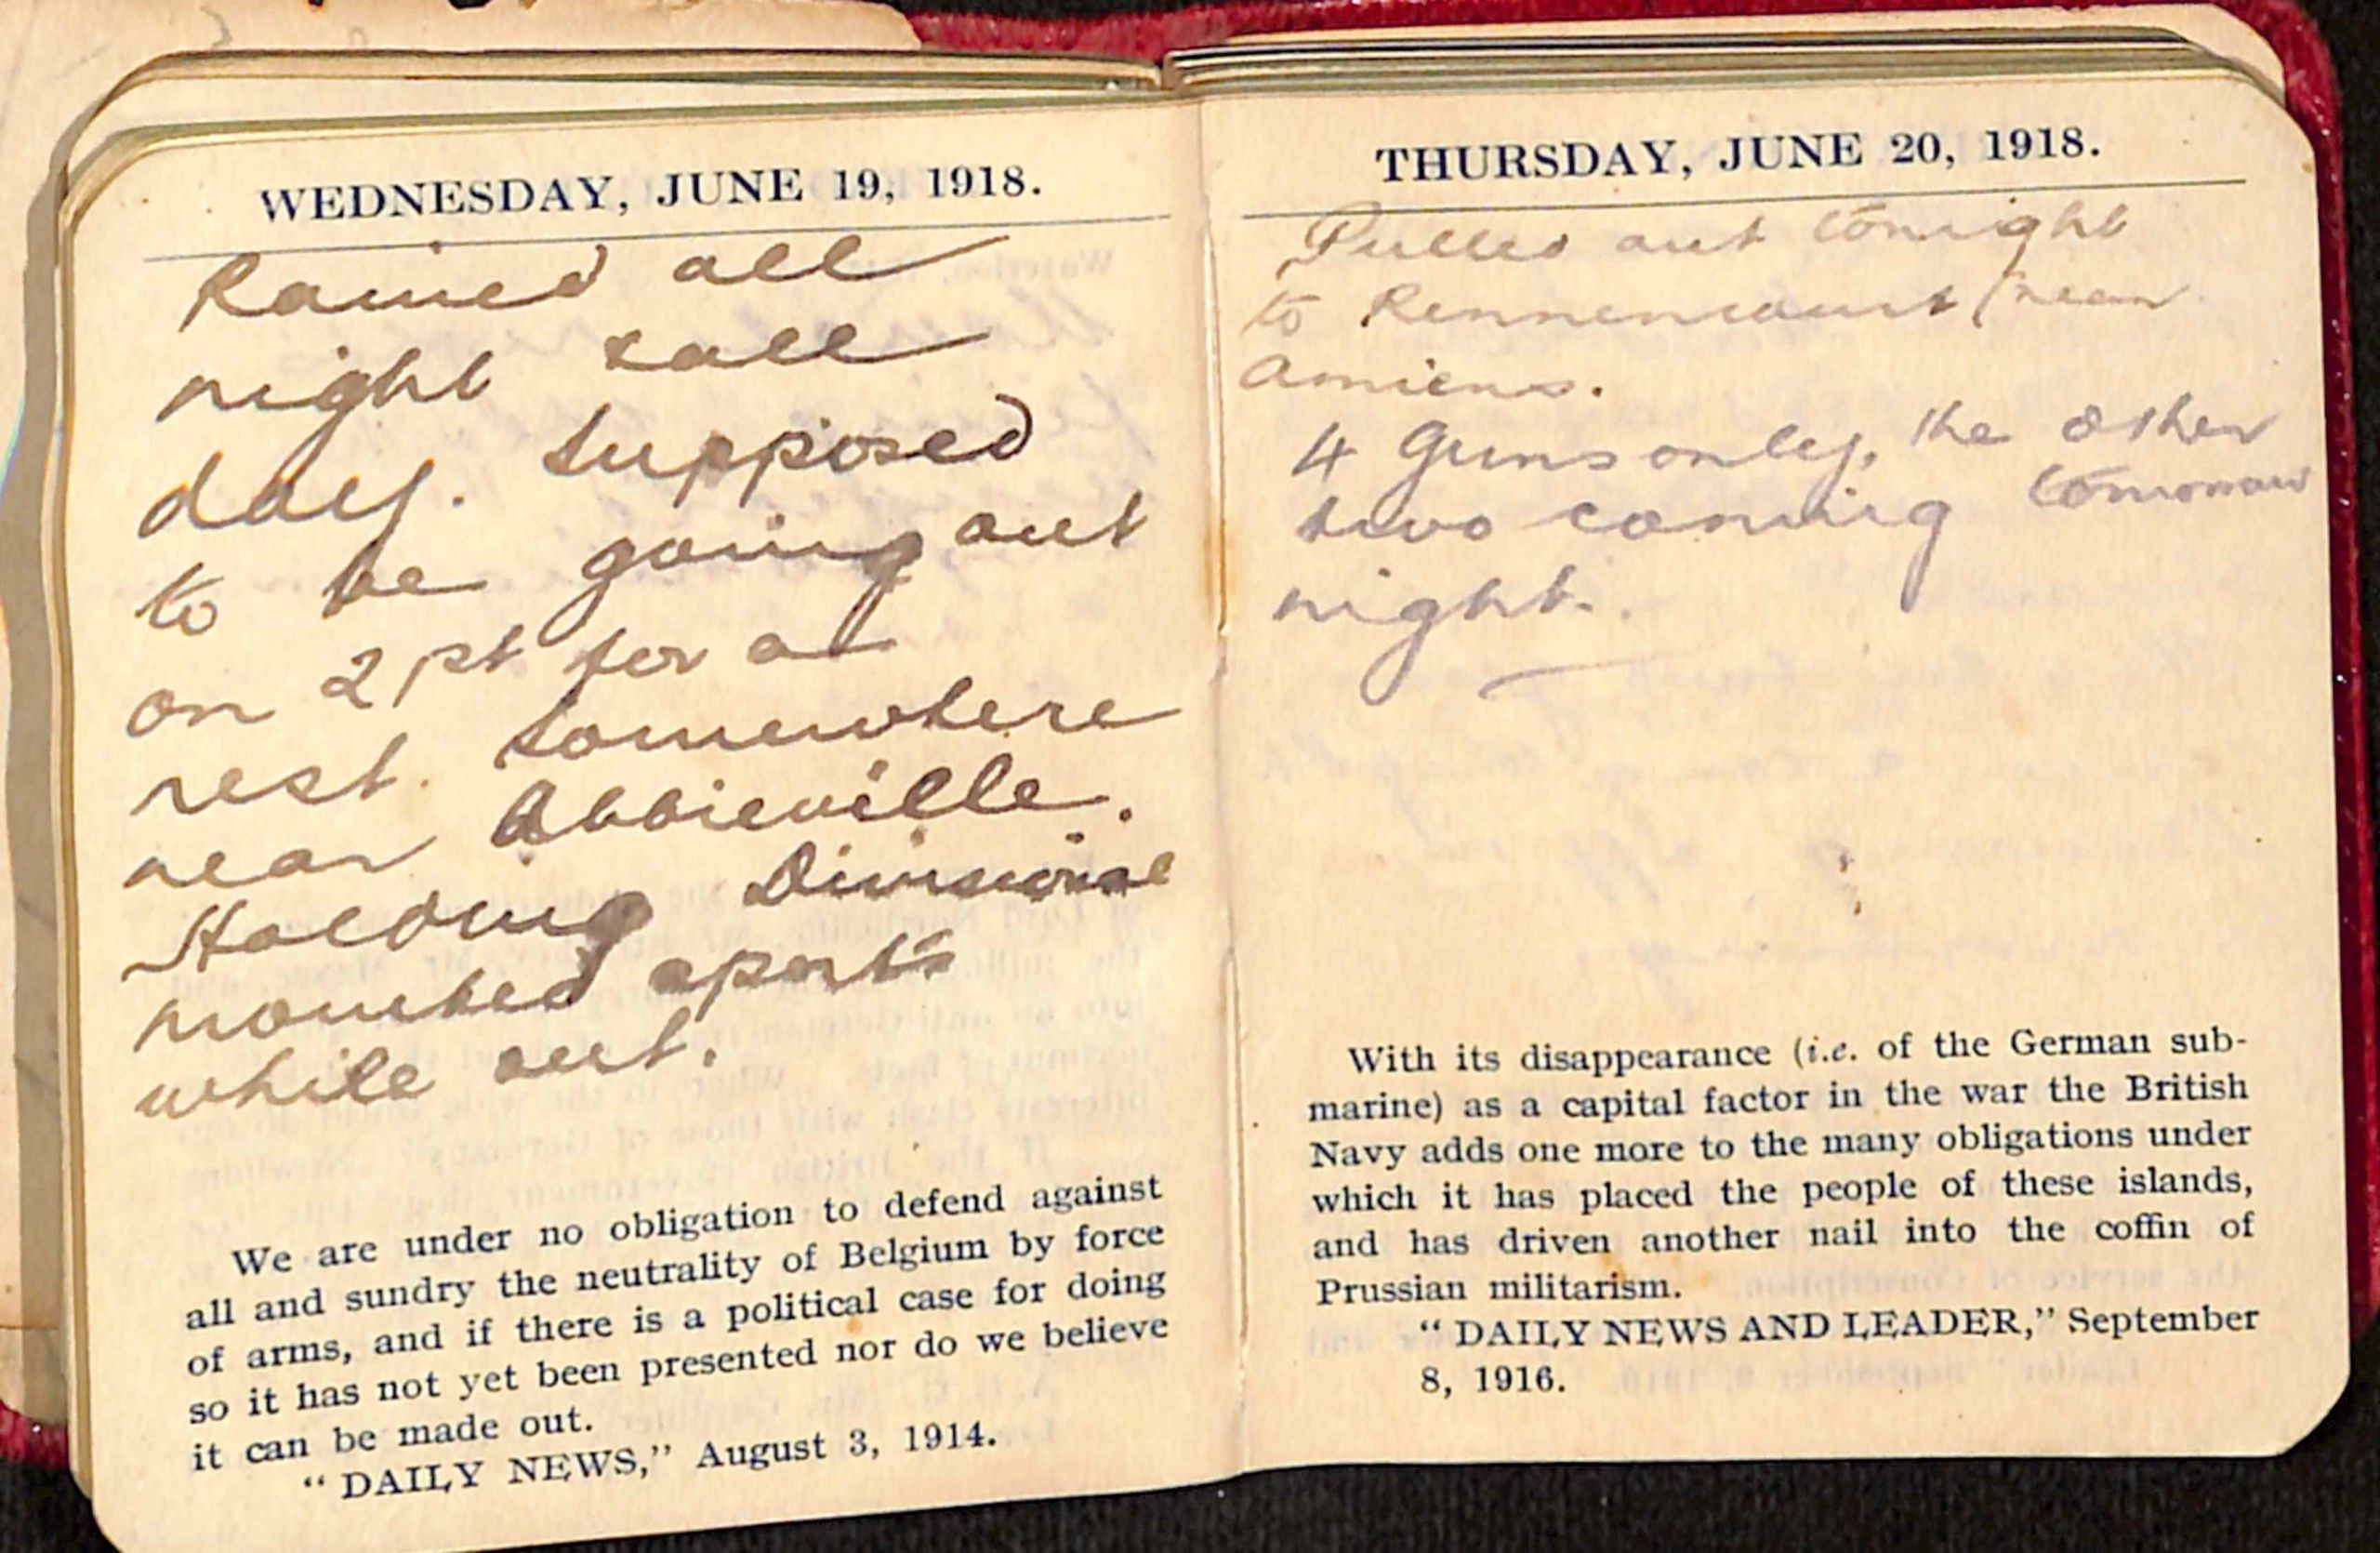 WEDNESDAY, JUNE 19, 1918.
Rained all
night & all
day. Supposed
to be going out
on 21st for a
rest. Somewhere
near Abbieville.
Holding Divisional
mounted sports
while out.
We are under no obligation to defend against
all and sundry the neutrality of Belgium by force
of arms, and if there is a political case for doing
so it has not yet been presented nor do we believe
it can be made out.
“ DAILY NEWS,” August 3, 1914.
THURSDAY, JUNE 20, 1918.
Pulled out tonight
to (near
Amiens.
4 Guns only, the other
two coming tomorrow
night.
With its disappearance (i.e. of the German sub-
marine) as a capital factor in the war the British
Navy adds one more to the many obligations under
which it has placed the people of these islands,
and has driven another nail into the coffin of
Prussian militarism.
“ DAILY NEWS AND LEADER,” September
8, 1916.